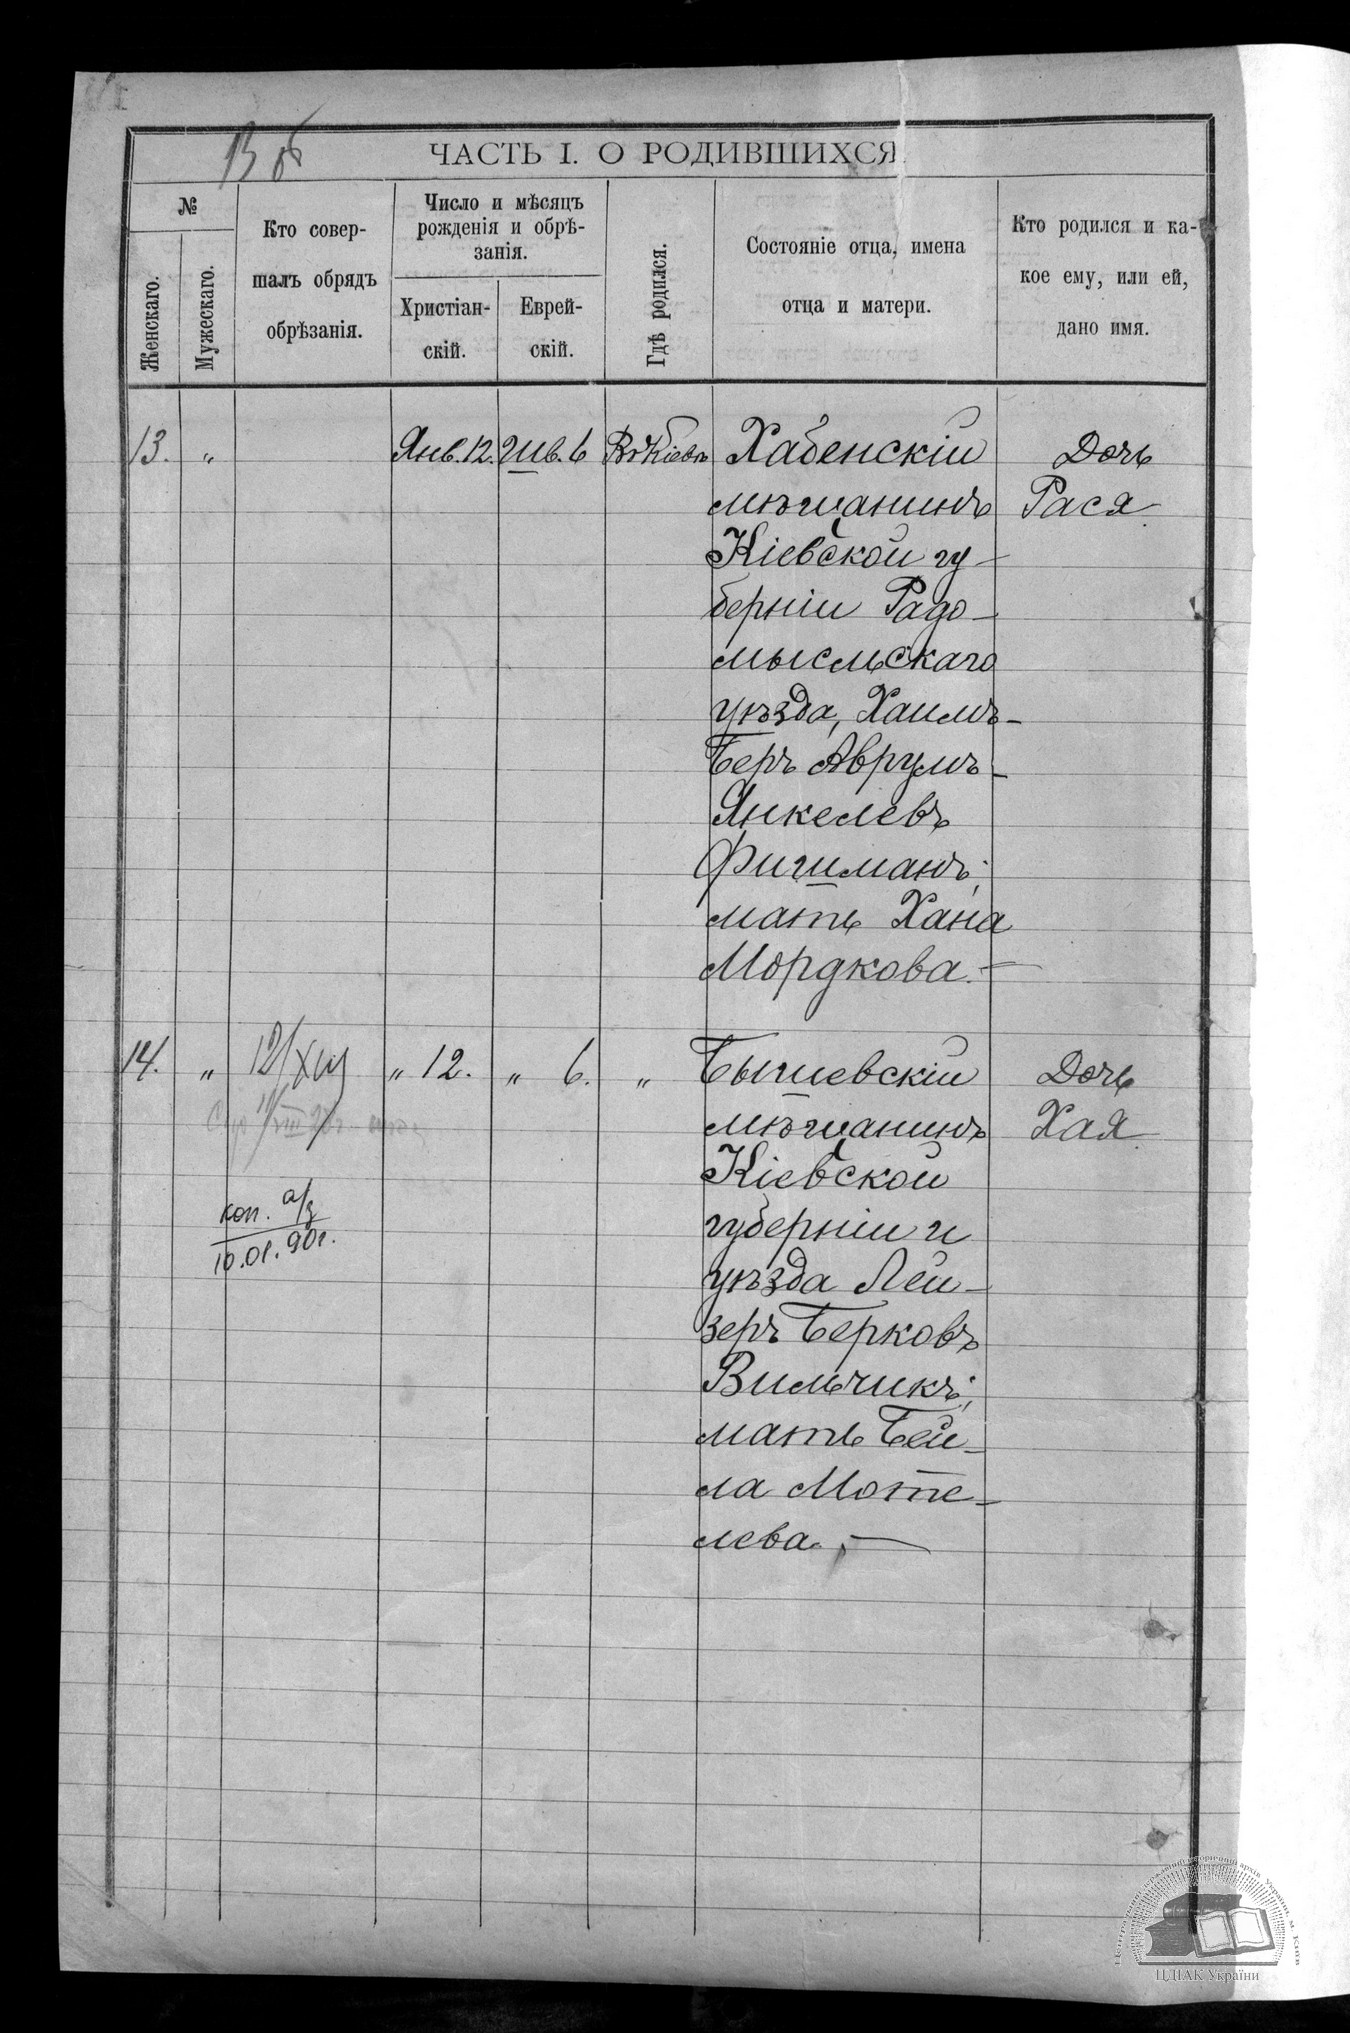 13 об
ЧАСТЬ I. О РОДИВШИХСЯ.
№
Женскаго.
Мужескаго.
Кто совер-
шалъ обрядъ
обрѣзанія.
Число и мѣсяцъ
рожденія и обрѣ-
занія.
Христіан-
скій.
Еврей-
скій.
Гдѣ родился.
Состояніе отца, имена
отца и матери.
Кто родился и ка-
кое ему, или ей,
дано имя.
13. " Янв. 12. Шв. 6 Въ Кіевѣ Хабенскій Дочь
мѣщанинъ Рася
Кіевской гу-
берніи Радо-
мысльскаго
уѣзда, Хаимъ-
Беръ Аврумъ-
Янкелевъ
Фишманъ;
мать Хана
Мордкова. —
14. " " 12. " 6. " Бышевскій Дочь
мѣщанинъ Хая
Кіевской
губерніи и
уѣзда Лей-
зеръ Берковъ
Вильчикъ;
мать Бей-
ла Моте-
лева. —
коп. а/з
10.01.90г.
ЦДІАК України